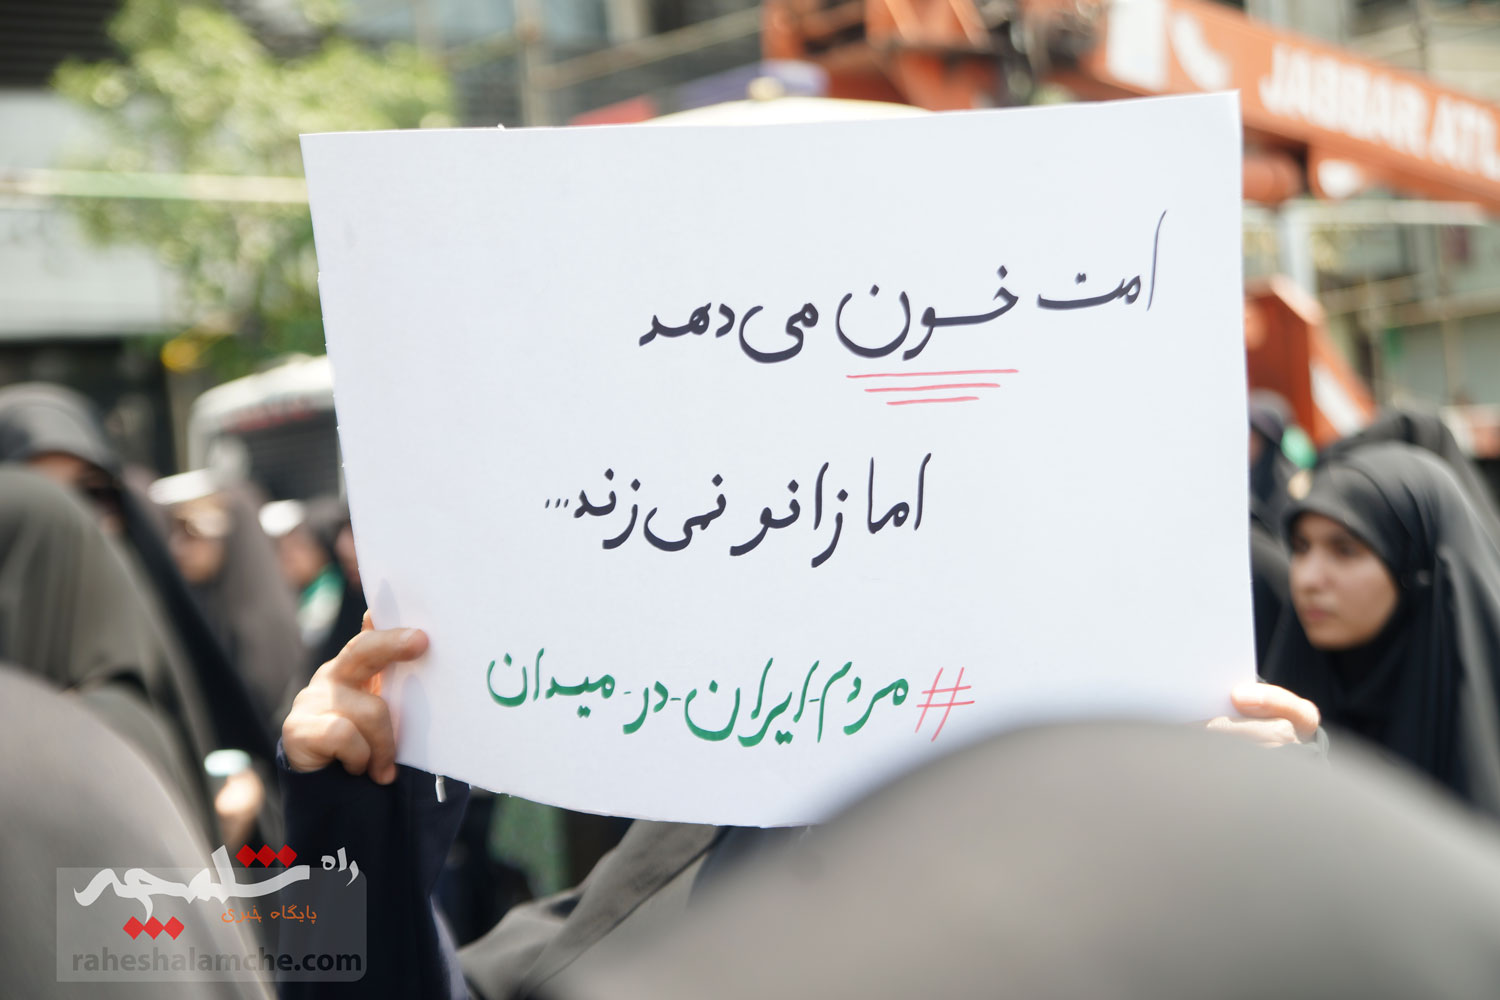 JABBAR ATL
امت خون می‌دهد
اما زانو نمی‌زند...
#مردم-ایران-در-میدان
راه شلمچه
پایگاه خبری
raheshalamche.com